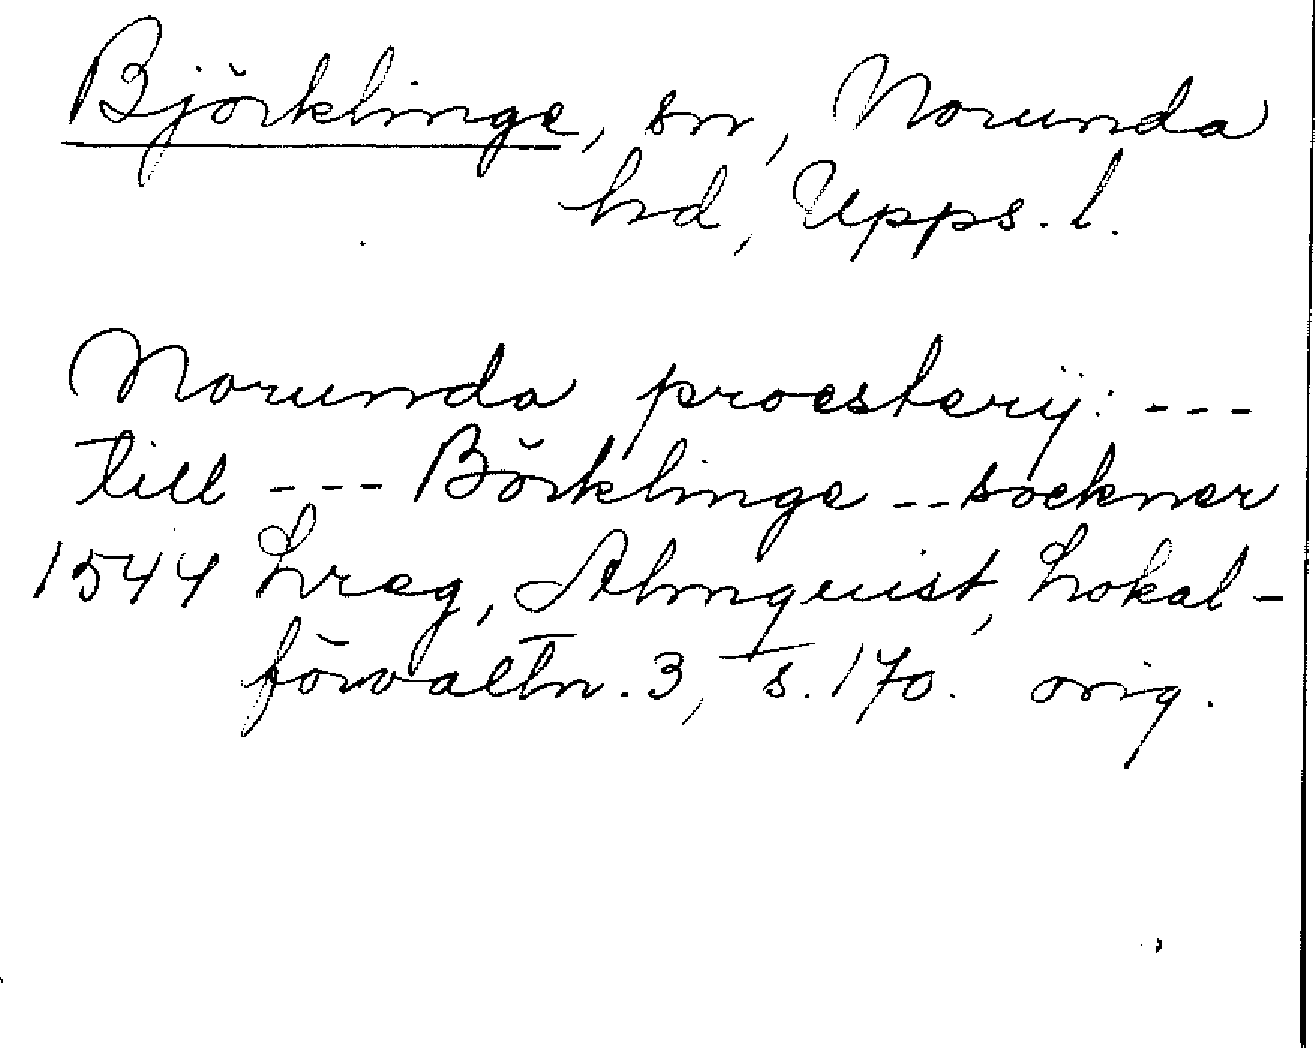 Björklinge, sn, Norunda
hd, Upps. l.
Norunda proesterij: ---
till --- Börklinge -- sockner
1544 Lreg, Almquist, Lokal-
förvaltn. 3, s. 170. orig.